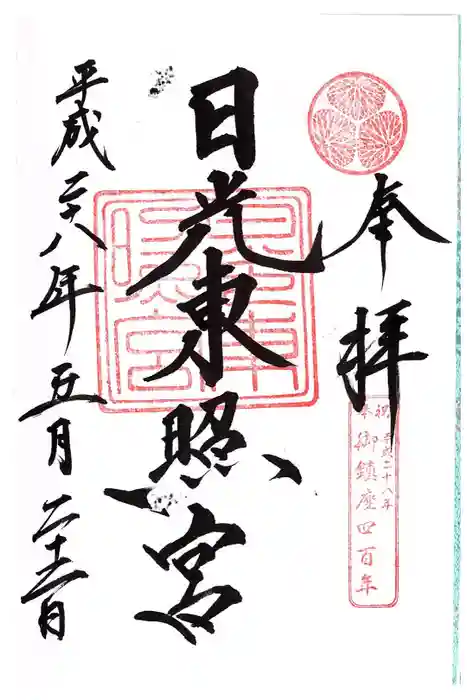 奉拝
祝 平成二十八年
御鎮座四百年
日光東照宮
東照宮
平成二十八年五月二十二日